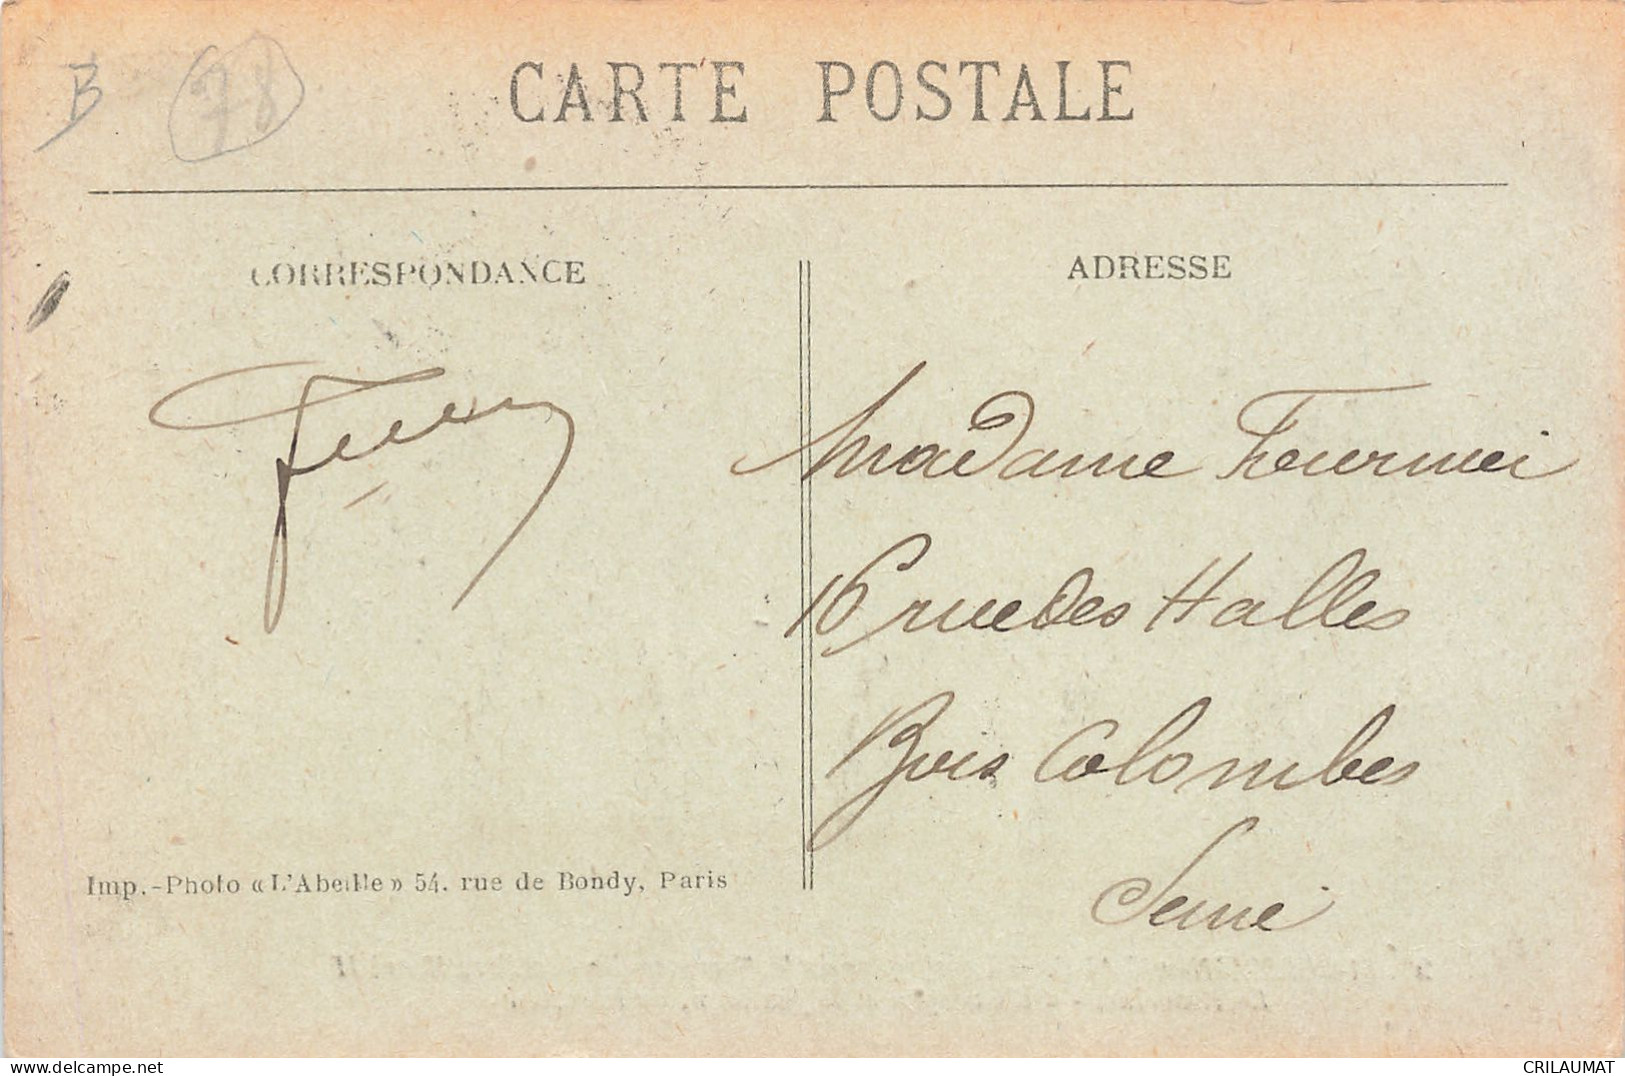 B 78
CARTE POSTALE
CORRESPONDANCE
ADRESSE
Madame Fournier
16 rue des Halles
Bois Colombes
Seine
Imp.-Photo «L'Abeille» 54, rue de Bondy, Paris
CRILAUMAT
delcampe.net